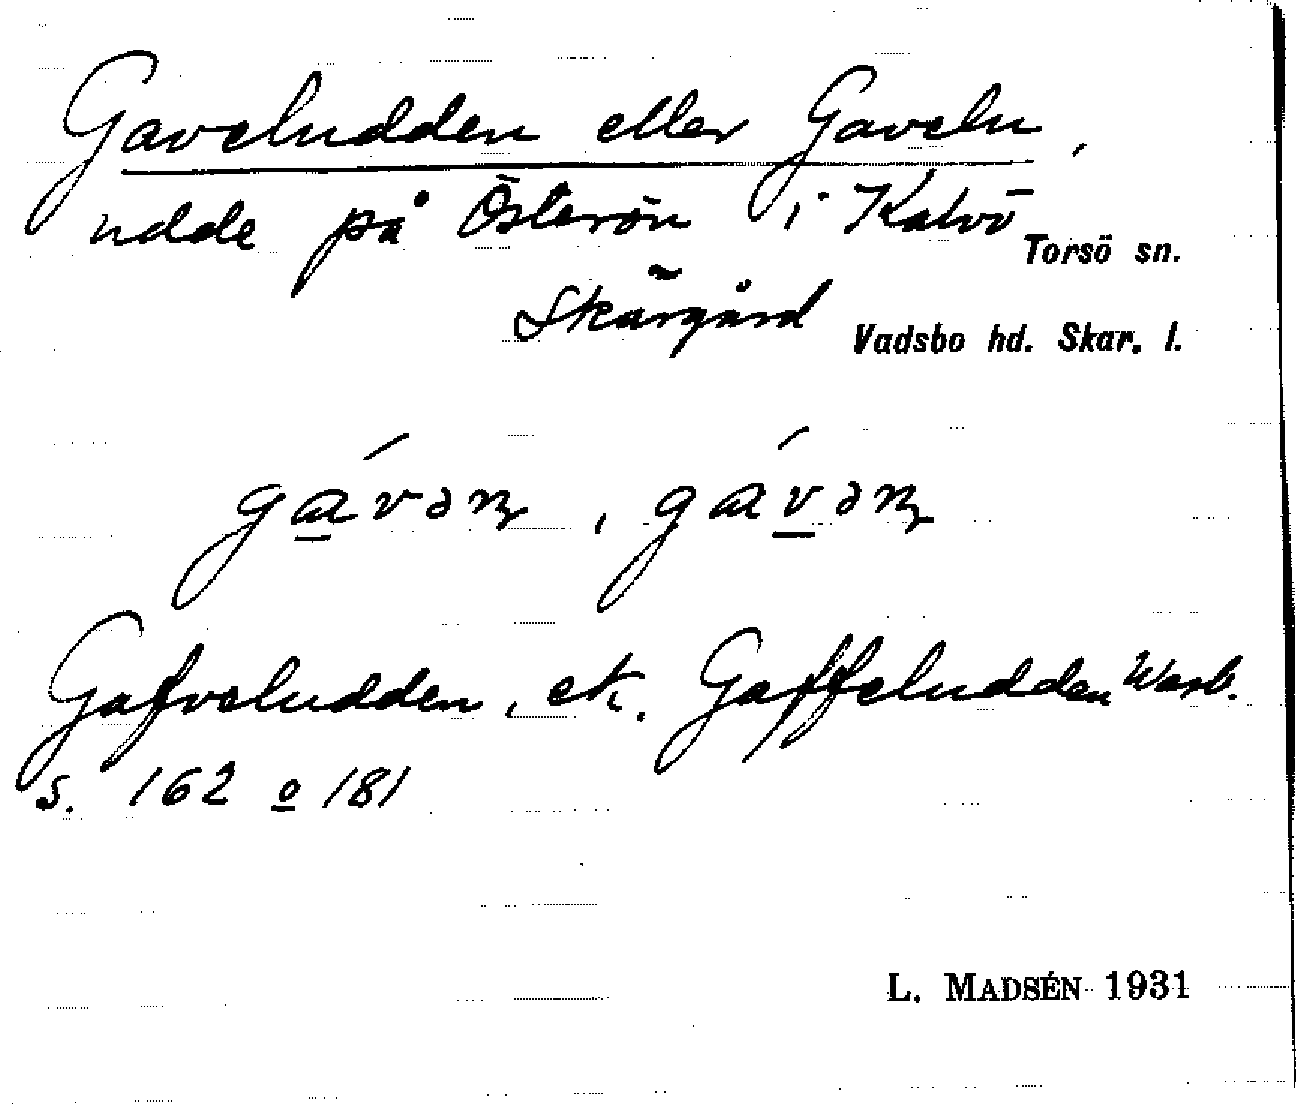 Gaveludden eller Gaveln,
udde på Österön i Kalvö
Torsö sn.
Skärgård
Vadsbo hd. Skar. l.
gávəɳ, gávəɳ
Gafveludden, ek. Gaffeludden Wasb.
s. 162 o 181
L. MADSÉN 1931